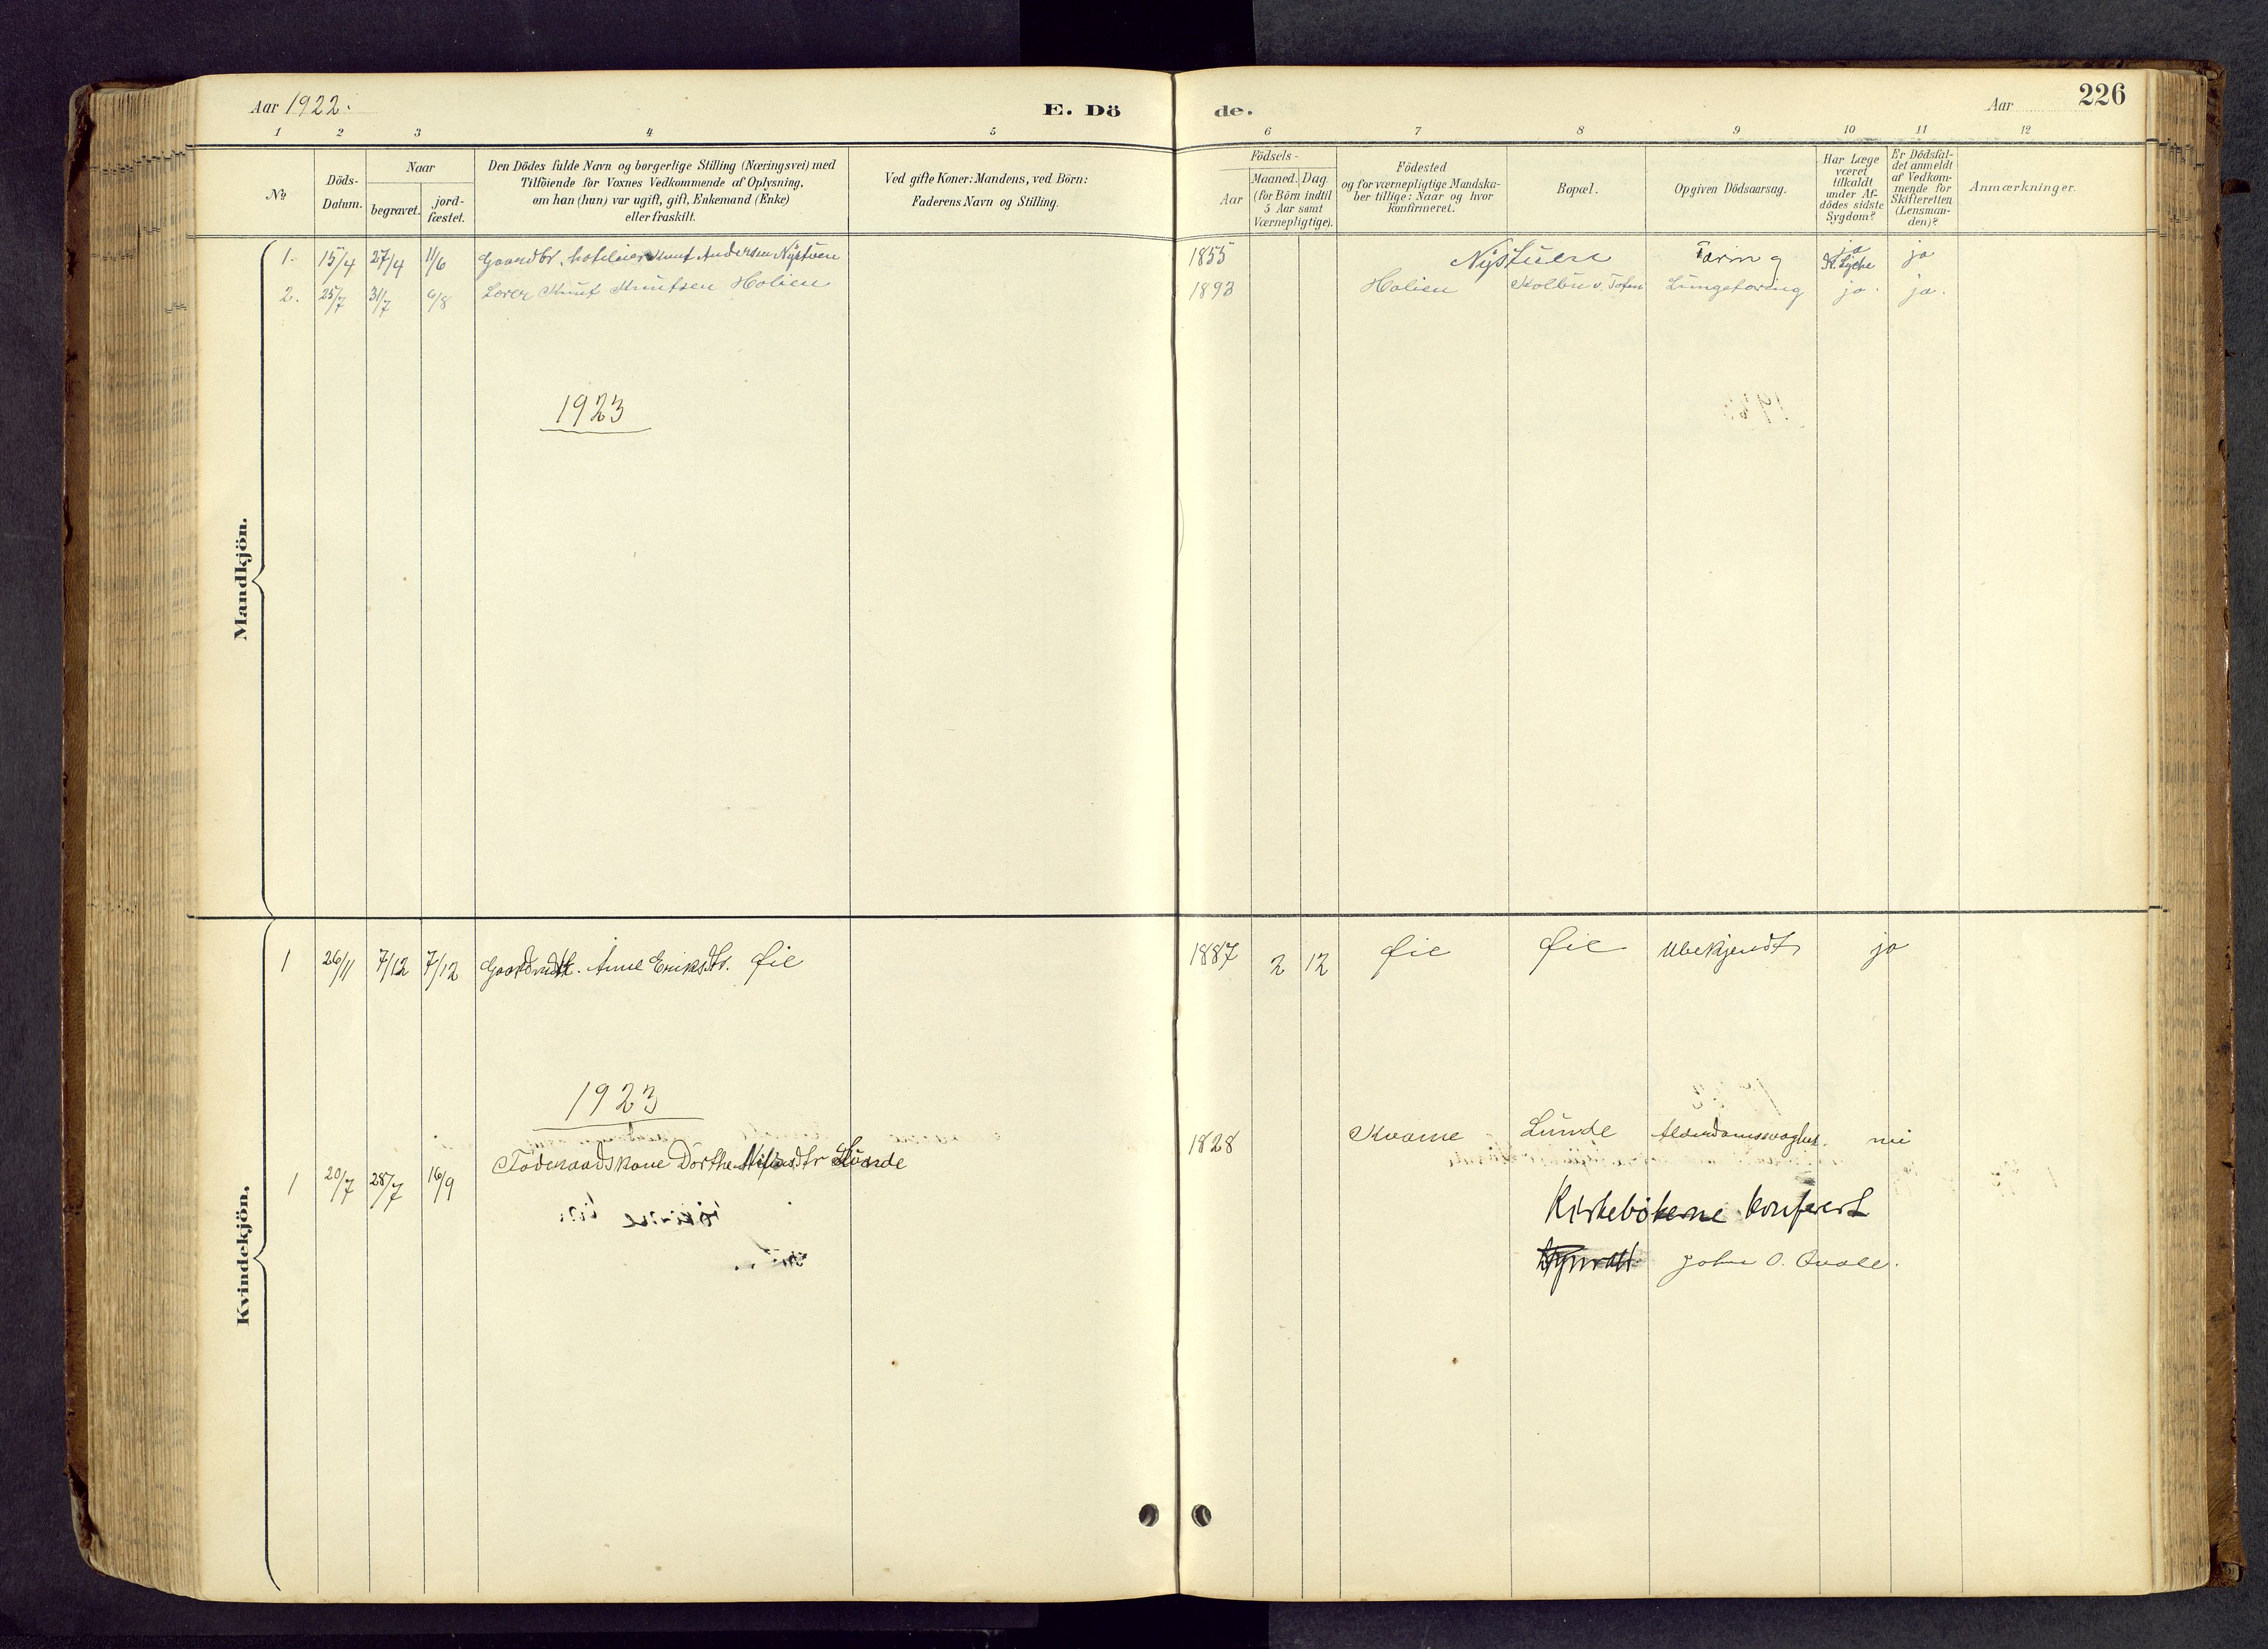 Aar 1922.
E. Dö
de.
Aar
226
1 2 3 4 5 6 7 8 9 10 11 12
No
Döds-
Datum.
Naar
begravet.
jord-
fæstet.
Den Dödes fulde Navn og borgerlige Stilling (Næringsvei) med
Tilföiende for Voxnes Vedkommende af Oplysning,
om han (hun) var ugift, gift, Enkemand (Enke)
eller fraskilt.
Ved gifte Koner: Mandens, ved Börn:
Faderens Navn og Stilling.
Födsels-
Aar
Maaned. Dag.
(for Börn indtil
5 Aar samt
Værnepligtige).
Födested
og for værnepligtige Mandska-
ber tillige: Naar og hvor
konfirmeret.
Bopæl.
Opgiven Dödsaarsag.
Har Læge
været
tilkaldt
under Af-
dödes sidste
Sygdom?
Er Dödsfal-
det anmeldt
af Vedkom-
mende for
Skifteretten
(Lensman-
den)?
Anmærkninger.
Mandkjön.
1. 15/4 27/4 11/6 Gaardbr. hoteleier Knut Andersen Nystuen 1855 Nystuen Tæring ja ja
2. 25/7 31/7 6/8 Lærer Knut Knutsen Holien 1893 Holien Kolbu v. Toten Lungetæring ja. ja.
1923
Kvindekjön.
1 26/11 7/12 7/12 Anne Eriksdtr. Øie 1887 2 12 Øie Øie Ubekjendt ja
1923
1 20/7 28/7 16/9 Föderaadskone Dorthe Lunde 1828 Kvame Lunde nei
Kirkebökerne konferert
John O. Qvale.